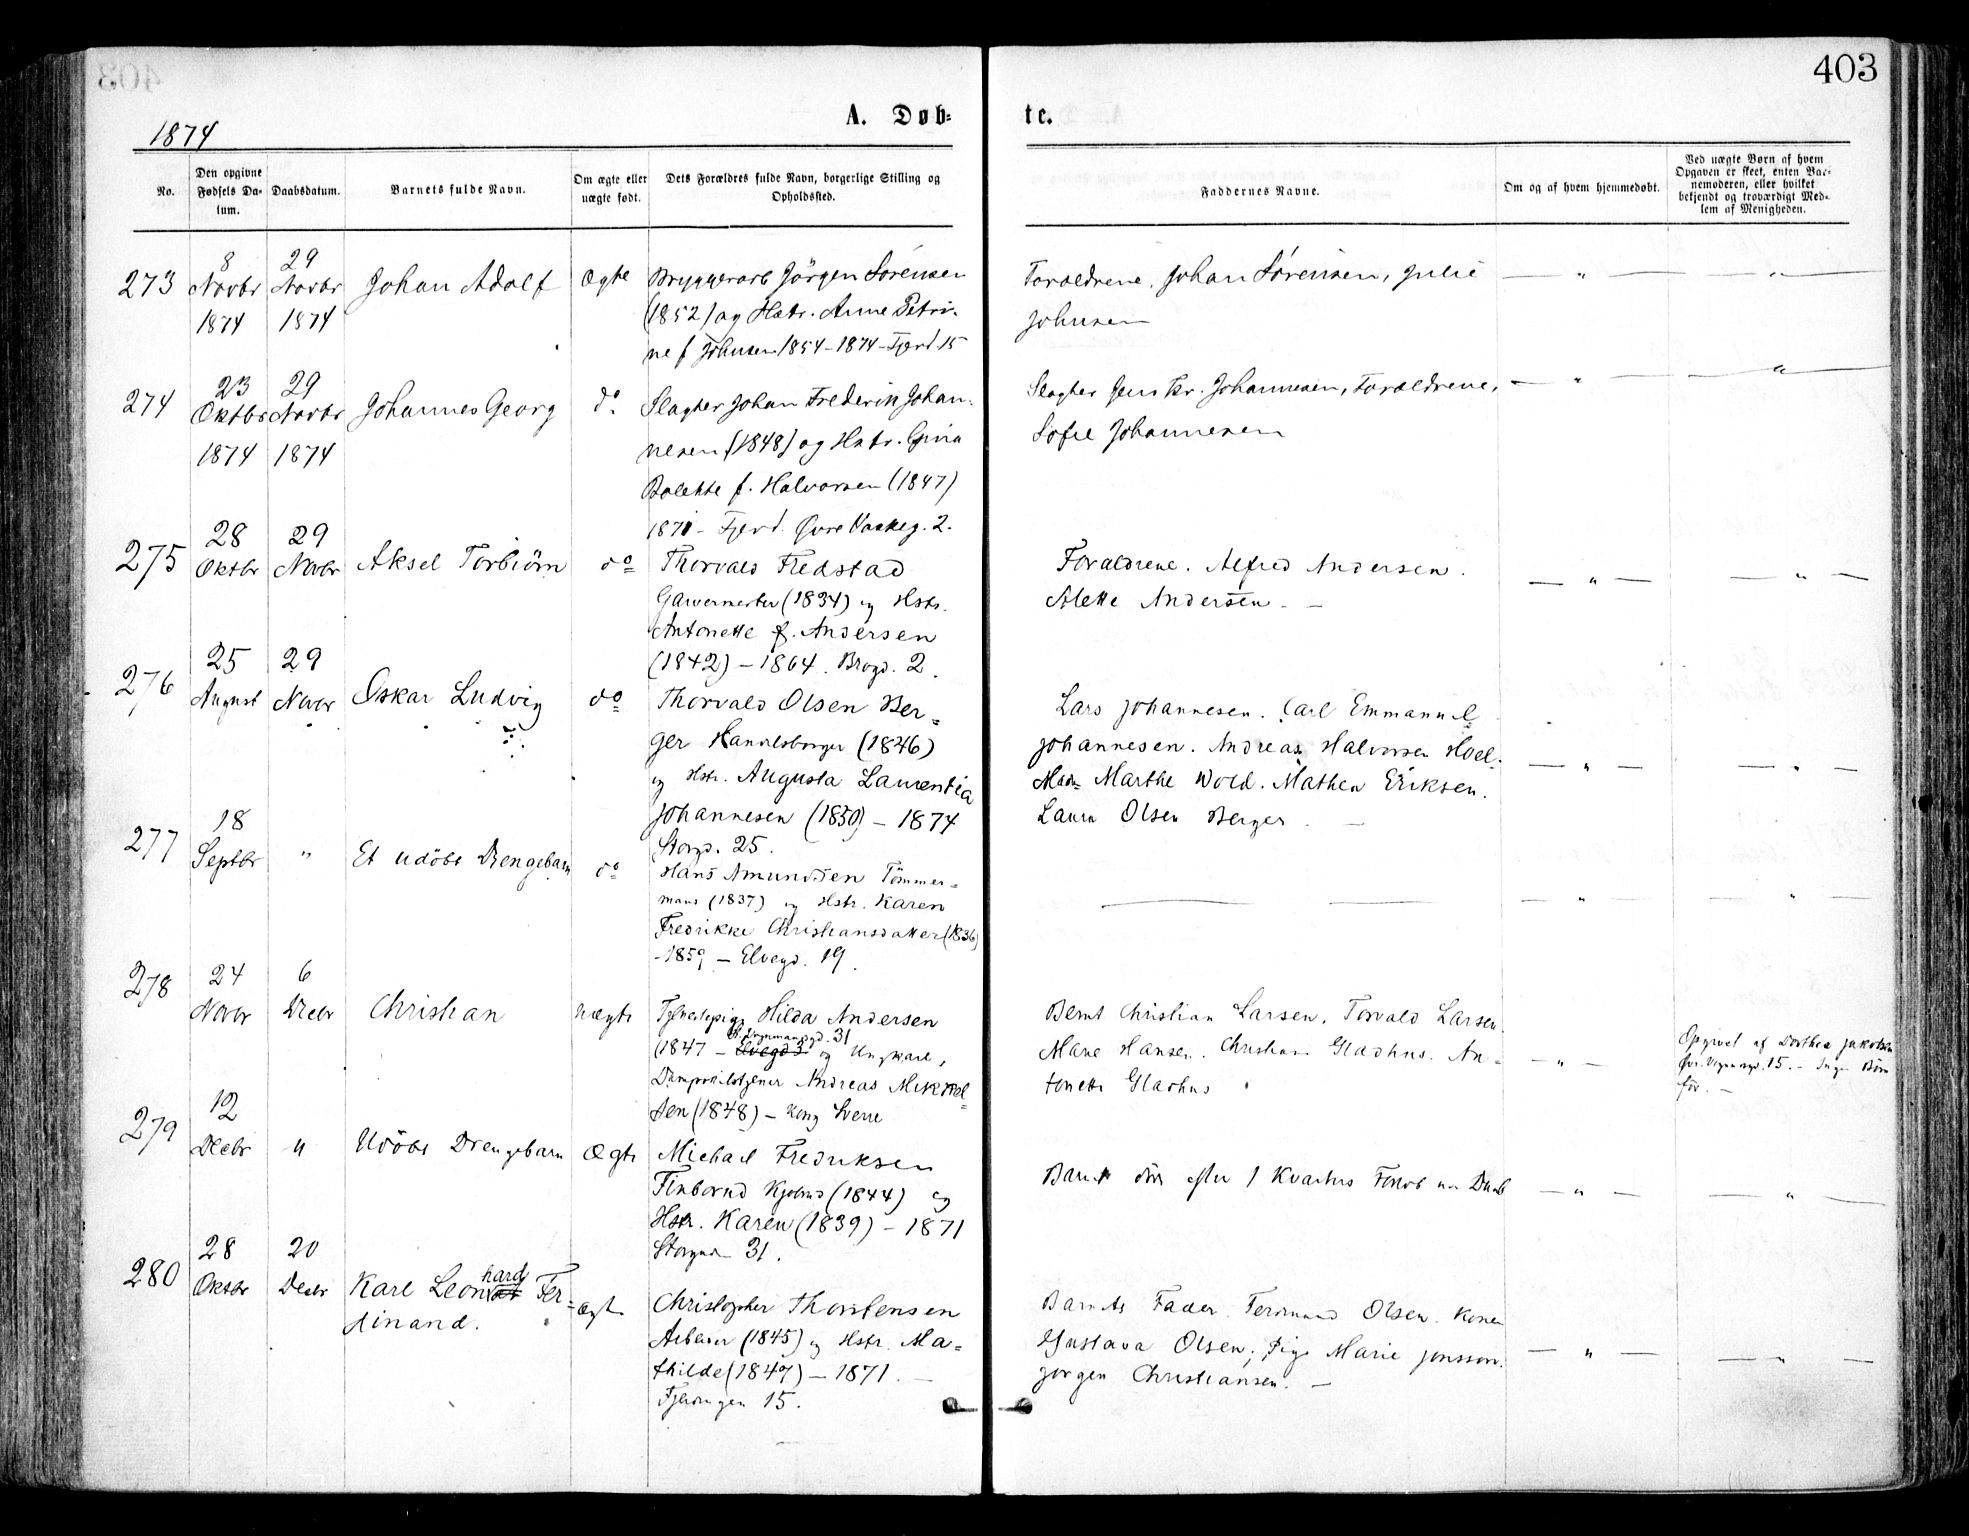 403
1874
A. Døb-
te.
No.
Den opgivne Fødsels Da-
tum.
Daabsdatum.
Barnets fulde Navn.
Om ægte eller
uægte født.
Dets Forældres fulde Navn, borgerlige Stilling og
Opholdssted.
Faddernes Navne.
Om og af hvem hjemmedøbt.
Ved uægte Børn af hvem
Opgaven er skeet, enten Bar-
nemoderen, eller hvilket
bekjendt og troværdigt Med-
lem af Menigheden.
273
8
Novbr
1874
29
Novbr
1874
Johan Adolf
Ægte
Bryggerarb Jörgen Sörensen
(1852) og Hstr. Anne Petri-
ne f Johnsen 1854 - 1874 - Fjerd 15
Forældrene, Johan Sörensen, Julie
Johnsen
274
23
Oktbr
1874
29
Novbr
1874
Johannes Georg
do
Slagter Johan Frederik Johan-
nesen (1848) og Hstr. Gina
Bolette f. Halvorsen (1847)
1871 - Fjerd. Øvre Vaskeg. 2.
Slagter Jens Kr. Johannesen, Forældrene,
Sofie Johannesen
275
28
Oktbr
29
Novbr
Aksel Torbiörn
do
Thorvald Fredstad
Garvermester (1834) og Hstr.
Antonette f. Andersen
(1842) - 1864. Brogd. 2.
Forældrene. Alfred Andersen.
Alette Andersen. -
276
25
August
29
Novbr
Oskar Ludvig
do
Thorvald Olsen Ber-
ger Handelsborger (1846)
og Hstr. Augusta Laurentia
Johannesen (1850) - 1874
Storgd. 25.
Lars Johannesen. Carl Emmanuel
Johannesen. Andreas Halvorsen Hoel.
Madm Marthe Wold. Mathea Eriksen.
Laura Olsen Berger. -
277
18
Septbr
"
Et udöbt Drengebarn
do
Hans Amundsen Tömmer-
mand (1837) og Hstr. Karen
Fredrikke Christiansdatter (1836)
- 1859 - Elvegd. 19.
278
24
Novbr
6
Decbr
Christian
uægte
Tjenestepige Hilda Andersen
31
(1847 - Elvegd 3 og Ungkarl,
Andreas Mikkel-
sen (1848) - Kong Sverre
Bernt Christian Larsen, Torvald Larsen
Marie Hansen. Christian Gladhus. An-
tonette Gladhus
Opgivet af Dorthea Jakobsen
15. - Ingen Börn
för. -
279
12
Decbr
"
Udöbt Drengebarn
Ægte
Michael Fredriksen
Finborud (1844) og
Hstr. Karen (1839) - 1871
Storgad 31.
Barnet döde efter 1 Kvarters Forlöb uden Daab
280
28
Oktbr
20
Decbr
hard
Karl Leon Fer-
dinand.
ægte
Christopher Thorstensen
Arbeider (1845) og Hstr. Ma-
thilde (1847) - 1871. -
Fjerdingen 15.
Barnets Fader. Ferdinand Olsen. Konen
Gustava Olsen; Pige Marie Jonsson.
Jorgen Christiansen. -